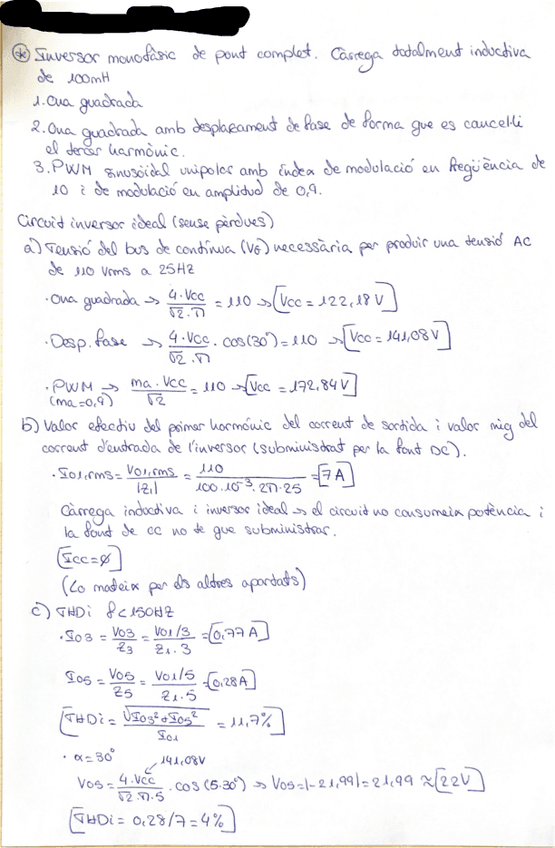 ⊛ Inversor monofàsic de pont complet. Càrrega totalment inductiva
de 100mH
1. Ona quadrada
2. Ona quadrada amb desplaçament de fase de forma que es cancel·li
el tercer harmònic.
3. PWM sinusoidal unipolar amb índex de modulació en freqüència de
10 i de modulació en amplitud de 0,9.
Circuit inversor ideal (sense pèrdues)
a) Tensió del bus de contínua (VG) necessària per produir una tensió AC
de 110 Vrms a 25Hz
· Ona quadrada → 4·Vcc/√2·π = 110 → Vcc = 122,18V
· Desp. fase → 4·Vcc/√2·π · cos(30°) = 110 → Vcc = 141,08V
· PWM → ma·Vcc/√2 = 110 → Vcc = 172,84V
(ma=0,9)
b) Valor efectiu del primer harmònic del corrent de sortida i valor mig del
corrent d'entrada de l'inversor (subministrat per la font DC).
· I01,rms = V01,rms/|Z1| = 110/100·10⁻³·2π·25 = 7A
Càrrega inductiva i inversor ideal → el circuit no consumeix potència i
la font de cc no té que subministrar.
Icc = ∅
(Lo mateix per els altres apartats)
c) THDi f<150Hz
· I03 = V03/Z3 = V01/3/Z1·3 = 0,77A
I05 = V05/Z5 = V01/5/Z1·5 = 0,28A
THDi = √I03²+I05²/I01 = 11,7%
· α=30° 141,08V
V05 = 4·Vcc/√2·π·5 · cos(5·30°) → V05 = |-21,99| = 21,99 ≈ 22V
THDi = 0,28/7 = 4%